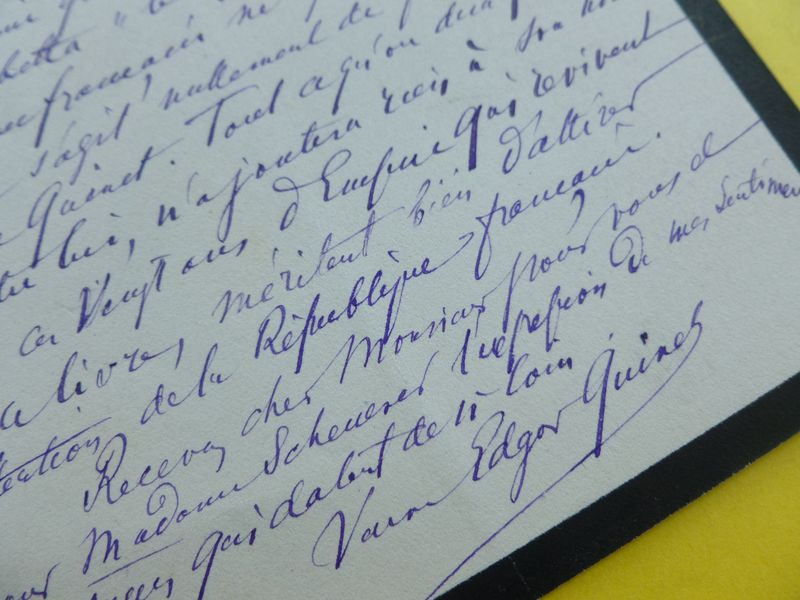 française ne
s'agit nullement de
Quinet. Tout ce qu'on dira
bis, n'ajoutera rien à son
ces vingt ans d'Empire qui revivent
livre, méritent bien d'attirer
de la République française.
Recevez cher Monsieur pour vous et
pour Madame Scheurer l'expression de mes sentimen
qui datent de si loin.
Veuve Edgar Quinet